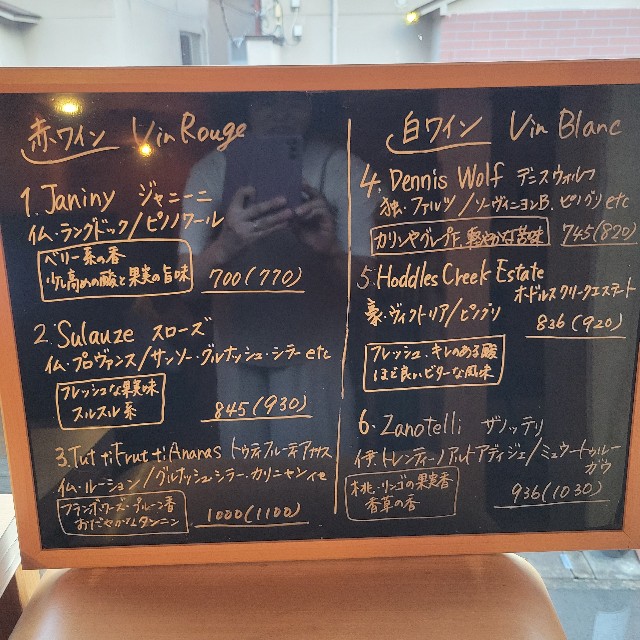 赤ワイン Vin Rouge
1. Janiny ジャニーニ
仏・ラングドック/ピノノワール
ベリー系の香
少し高めの酸と果実の旨味
700(770)
2. Sulauze スローズ
仏・プロヴァンス/サンソー・グルナッシュ・シラー etc
フレッシュな果実味
スルスル系
845(930)
3. Tutti Frutti Ananas トゥティフルーティアナナス
仏・ルーション/グルナッシュ・シラー・カリニャン
フランボワーズ・プルーン香
おだやかなタンニン
1000(1100)
白ワイン Vin Blanc
4. Dennis Wolf デニスウォルフ
独・ファルツ/ソーヴィニヨンB. ピノグリ etc
カリンやグレプF. 軽やかな苦味
745(820)
5. Hoddles Creek Estate
ホドルスクリークエステート
豪・ヴィクトリア/ピノグリ
836(920)
フレッシュ・キレのある酸
ほど良いビターな風味
6. Zanotelli ザノッテリ
伊・トレンティーノアルトアディジェ/ミュラートゥルー
ガウ
桃・リンゴの果実香
香草の香
936(1030)